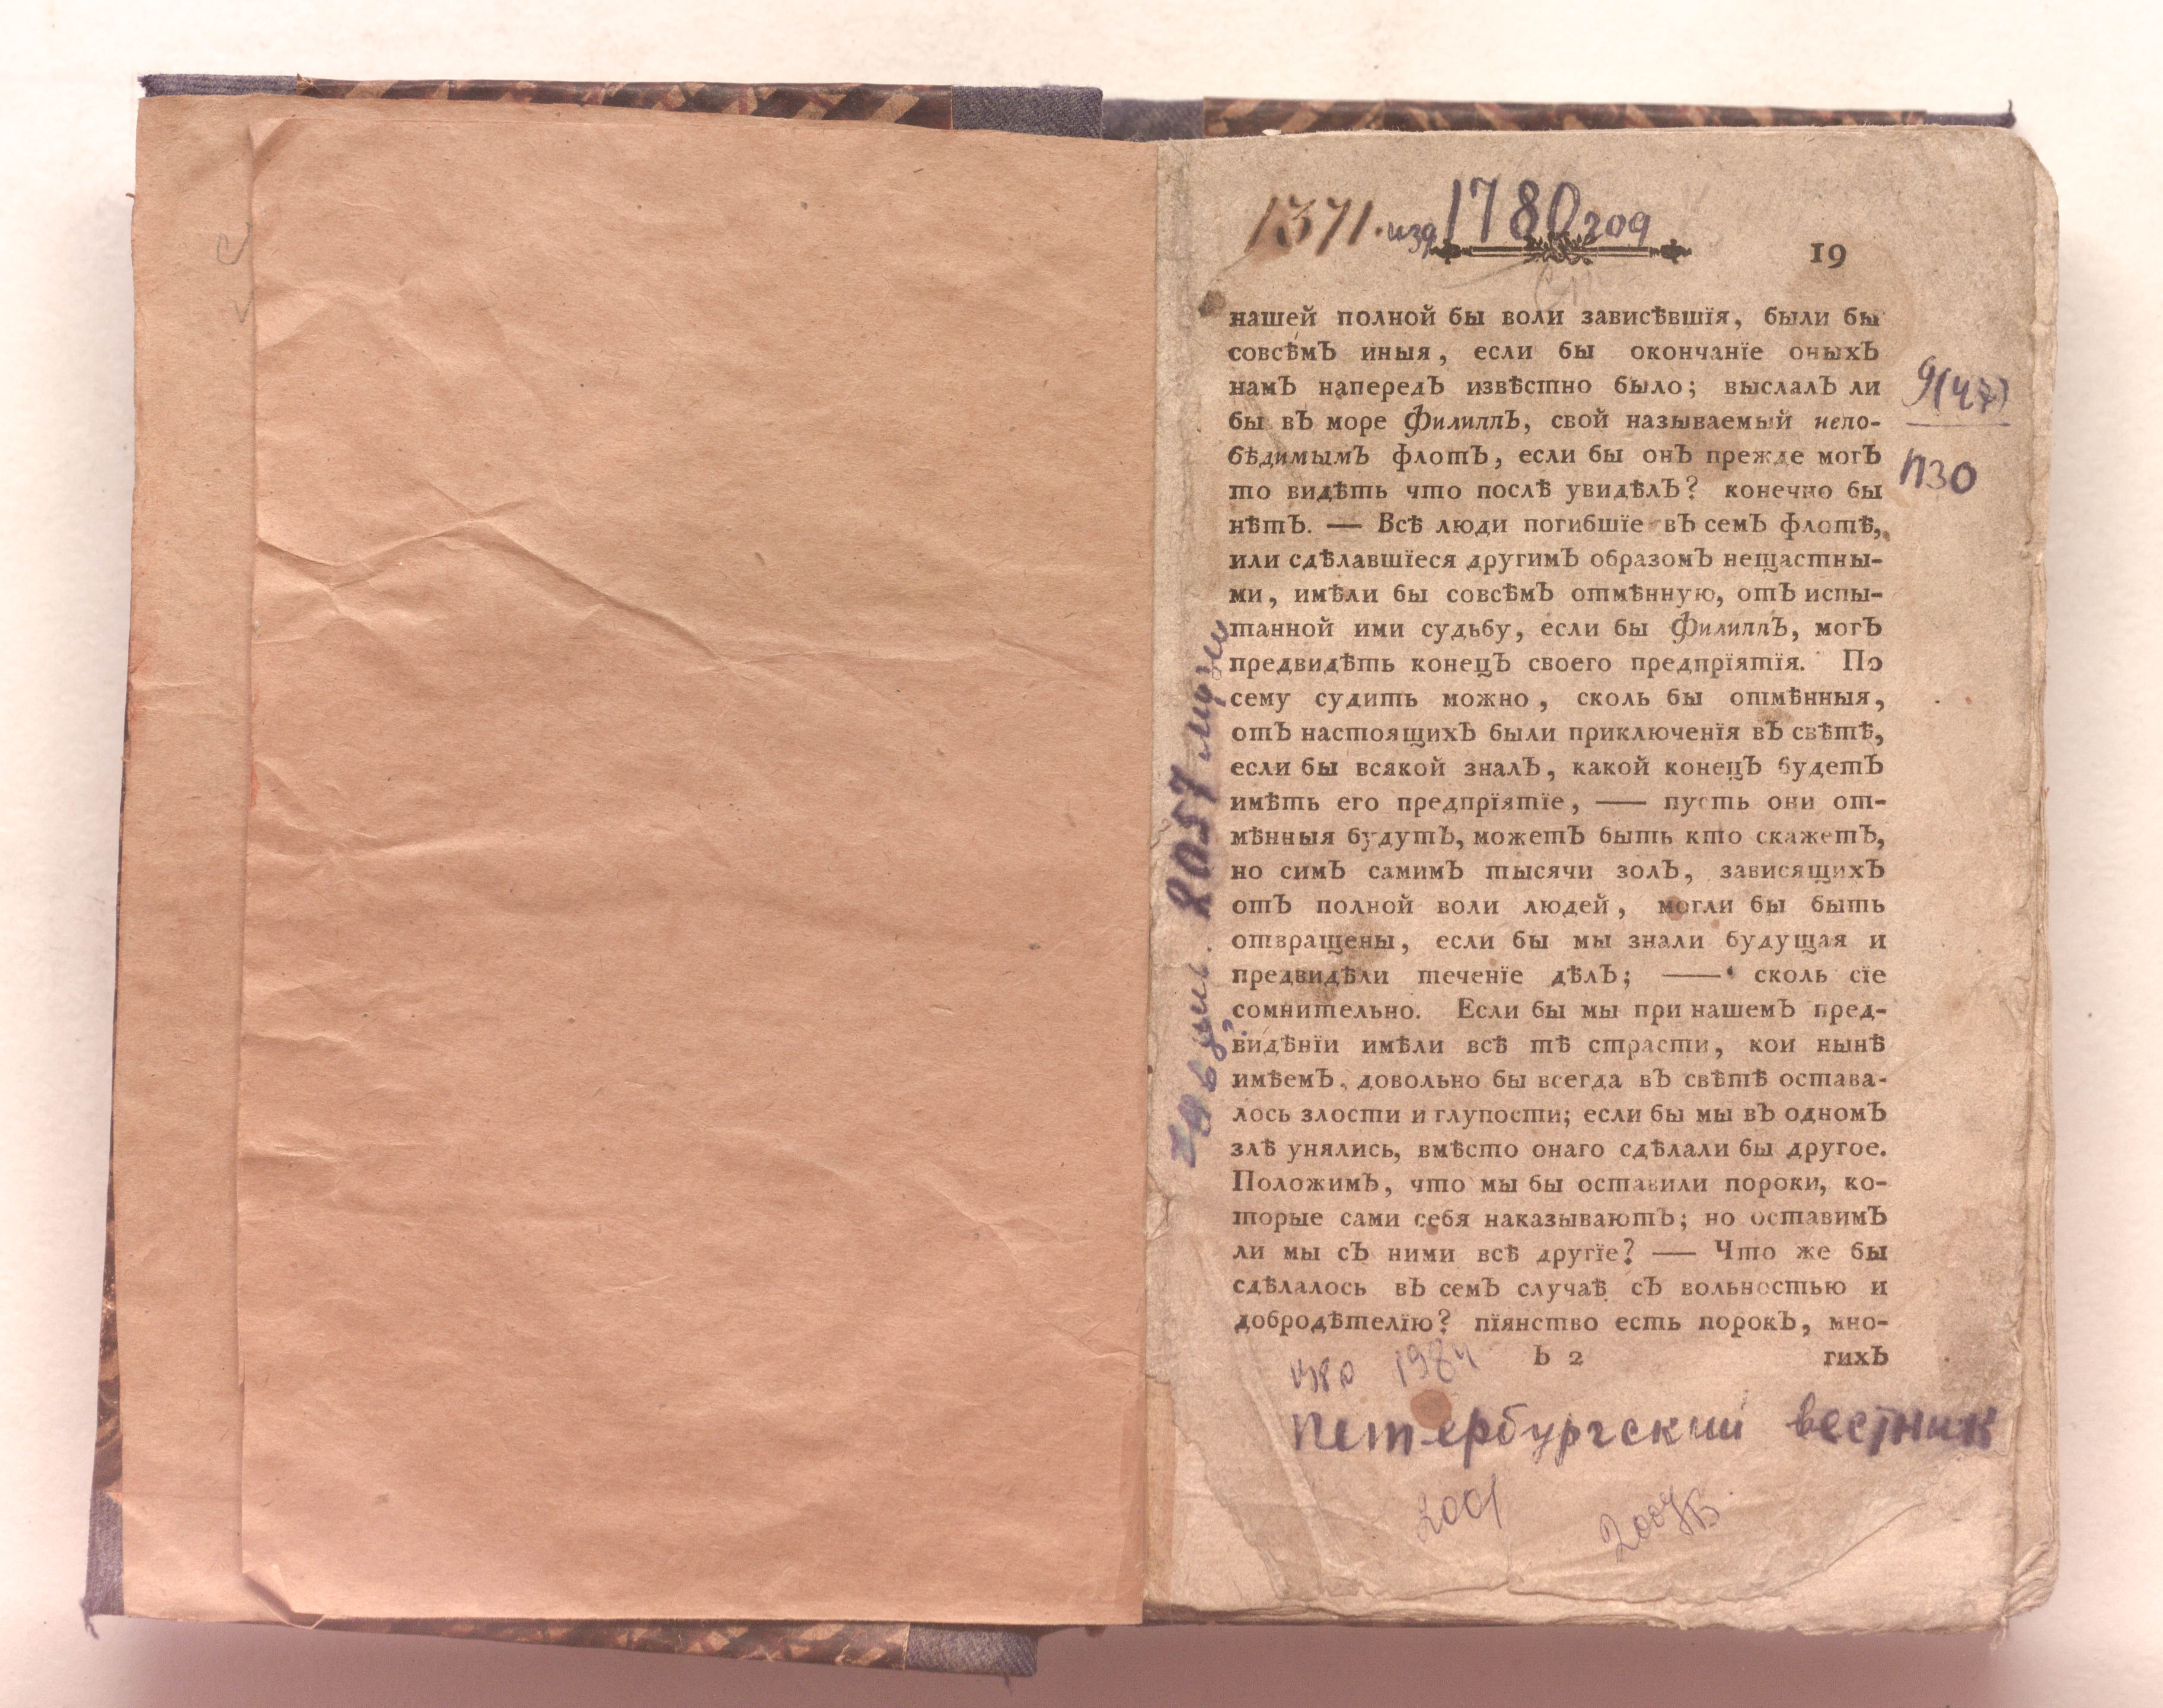 1371. изд 1780 год
19
нашей полной бы воли зависѣвшїя, были бы
совсѣмЪ иныя, если бы окончанїе оныхЪ
намЪ напередЪ извѣстно было; выслалЪ ли
бы вЪ море ФилиппЪ, свой называемый непо-
бѣдимымЪ флотЪ, если бы онЪ прежде могЪ
то видѣть что послѣ увидѣлЪ? конечно бы
нѣтЪ. — Всѣ люди погибшїе вЪ семЪ флотѣ,
или сдѣлавшїеся другимЪ образомЪ нещастны-
ми, имѣли бы совсѣмЪ отмѣнную, отЪ испы-
танной ими судьбу, если бы ФилиппЪ, могЪ
предвидѣть конецЪ своего предпрїятїя. По
сему судить можно, сколь бы отмѣнныя,
отЪ настоящихЪ были приключенїя вЪ свѣтѣ,
если бы всякой зналЪ, какой конецЪ будетЪ
имѣть его предпрїятїе, — пусть они от-
мѣнныя будутЪ, можетЪ быть кто скажетЪ,
но симЪ самимЪ тысячи золЪ, зависящихЪ
отЪ полной воли людей, могли бы быть
отвращены, если бы мы знали будущая и
предвидѣли теченїе дѣлЪ; — сколь сїе
сомнительно. Если бы мы при нашемЪ пред-
видѣнїи имѣли всѣ тѣ страсти, кои нынѣ
имѣемЪ, довольно бы всегда вЪ свѣтѣ остава-
лось злости и глупости; если бы мы вЪ одномЪ
злѣ унялись, вмѣсто онаго сдѣлали бы другое.
ПоложимЪ, что мы бы оставили пороки, ко-
торые сами себя наказываютЪ; но оставимЪ
ли мы сЪ ними всѣ другїе? — Что же бы
сдѣлалось вЪ семЪ случаѣ сЪ вольностью и
добродѣтелїю? пїянство есть порокЪ, мно-
Ь 2 гихЪ
9(47)
П30
1984
Петербургский вестник
2001